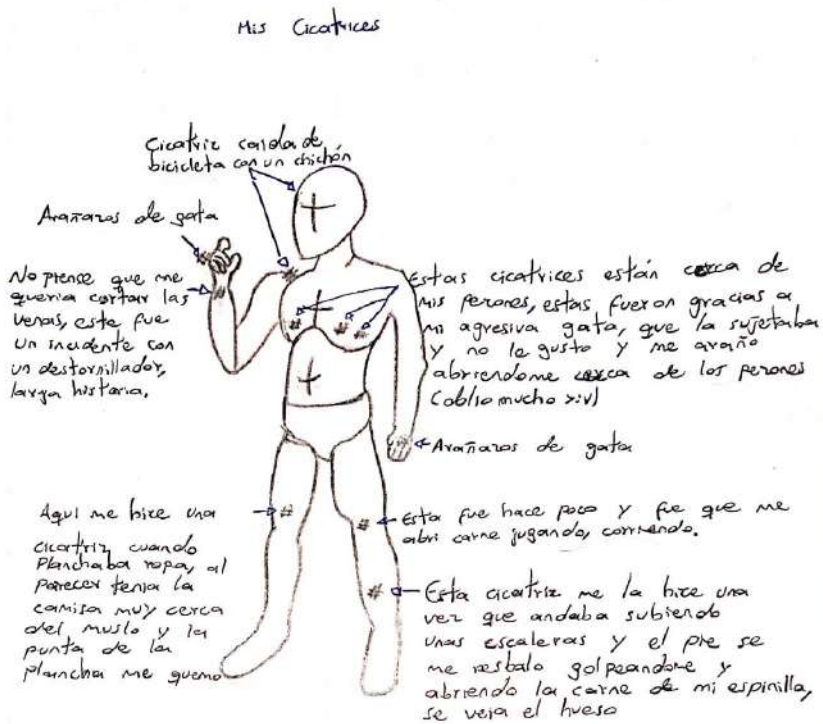 Mis Cicatrices
Cicatriz caida de
bicicleta con un chichón
Arañazos de gata
No piense que me
queria cortar las
venas, este fue
un incidente con
un destornillador,
larga historia.
Estas cicatrices están cerca de
mis pezones, estas fueron gracias a
mi agresiva gata, que la sujetaba
y no le gusto y me araño
abriendome cerca de los pezones
(oblio mucho >:v)
Arañazos de gata
Aqui me hice una
cicatriz cuando
planchaba ropa, al
parecer tenia la
camisa muy cerca
del muslo y la
punta de la
plancha me quemo
Esta fue hace poco y fue que me
abri carne jugando, corriendo.
Esta cicatriz me la hice una
vez que andaba subiendo
unas escaleras y el pie se
me resbalo golpeandome y
abriendo la carne de mi espinilla,
se veia el hueso